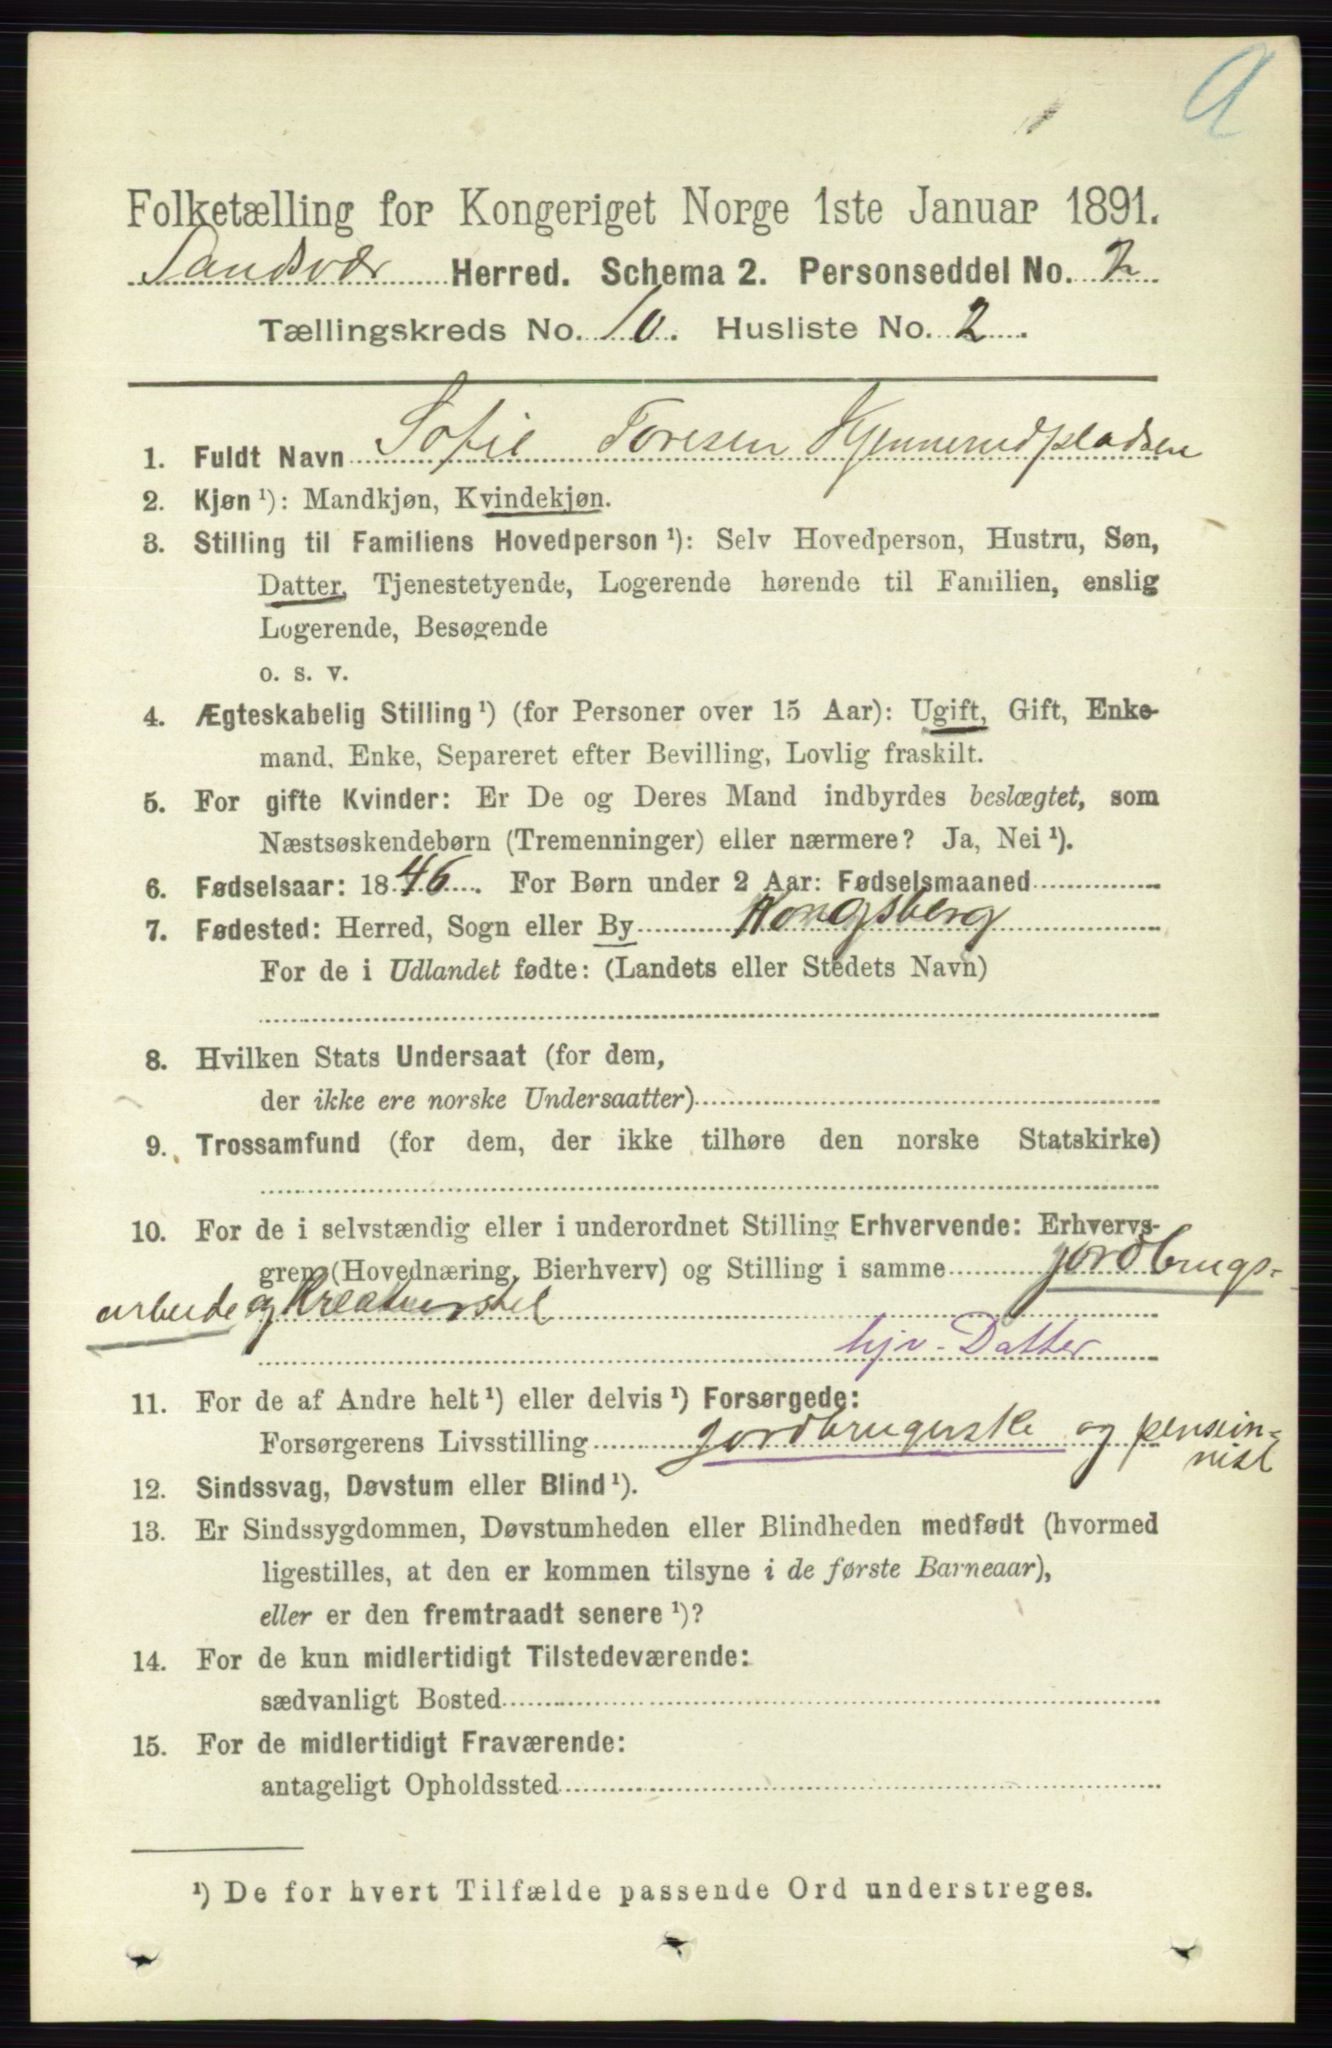 A
Folketælling for Kongeriget Norge 1ste Januar 1891.
Sandsvær Herred. Schema 2. Personseddel No. 2
Tællingskreds No. 10. Husliste No. 2.
1. Fuldt Navn Sofie Toresen Kjennerudpladsen
2. Kjøn ¹): Mandkjøn, Kvindekjøn.
3. Stilling til Familiens Hovedperson ¹): Selv Hovedperson, Hustru, Søn,
Datter, Tjenestetyende, Logerende hørende til Familien, enslig
Logerende, Besøgende
o. s. v.
4. Ægteskabelig Stilling ¹) (for Personer over 15 Aar): Ugift, Gift, Enke-
mand, Enke, Separeret efter Bevilling, Lovlig fraskilt.
5. For gifte Kvinder: Er De og Deres Mand indbyrdes beslægtet, som
Næstsøskendebørn (Tremenninger) eller nærmere? Ja, Nei ¹).
6. Fødselsaar: 1846. For Børn under 2 Aar: Fødselsmaaned
7. Fødested: Herred, Sogn eller By Kongsberg
For de i Udlandet fødte: (Landets eller Stedets Navn)
8. Hvilken Stats Undersaat (for dem,
der ikke ere norske Undersaatter)
9. Trossamfund (for dem, der ikke tilhøre den norske Statskirke)
10. For de i selvstændig eller i underordnet Stilling Erhvervende: Erhvervs-
gren (Hovednæring, Bierhverv) og Stilling i samme jordbrugs-
arbeide og Kreaturstel
hjv. Datter
11. For de af Andre helt ¹) eller delvis ¹) Forsørgede:
Forsørgerens Livsstilling jordbrugerske og pension-
nist
12. Sindssvag, Døvstum eller Blind ¹).
13. Er Sindssygdommen, Døvstumheden eller Blindheden medfødt (hvormed
ligestilles, at den er kommen tilsyne i de første Barneaar),
eller er den fremtraadt senere ¹)?
14. For de kun midlertidigt Tilstedeværende:
sædvanligt Bosted
15. For de midlertidigt Fraværende:
antageligt Opholdssted
¹) De for hvert Tilfælde passende Ord understreges.